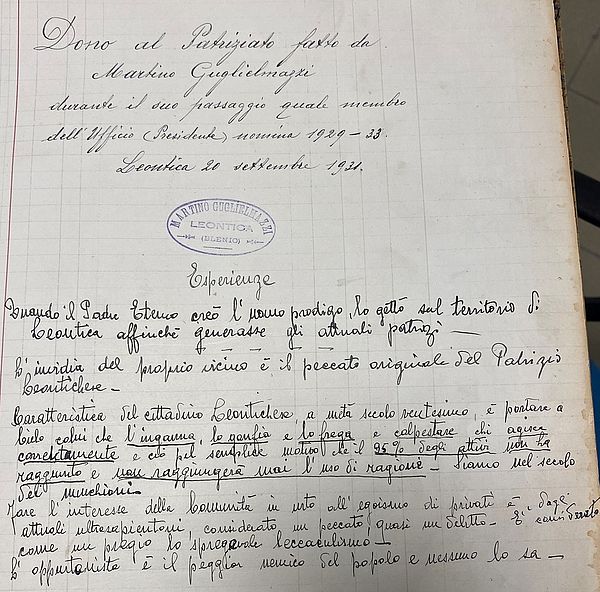 Dono al Patriziato fatto da
Martino Guglielmazzi
durante il suo passaggio quale membro
dell'Ufficio (Presidente) nomina 1929-33.
Leontica 20 settembre 1931.
MARTINO GUGLIELMAZZI
LEONTICA
(BLENIO)
Esperienze
Quando il Padre Eterno creò l'uomo prodigo, lo gettò sul territorio di
Leontica affinchè generasse gli attuali patrizi —
L'invidia del proprio vicino è il peccato originale del Patrizio
Leontichese -
Caratteristica del cittadino Leontichese, a metà secolo ventesimo, è portare a
Cielo colui che l'inganna, lo gonfia e lo frega e calpestare chi agisce
correttamente e ciò pel semplice motivo che il 95% degli attivi non ha
raggiunto e non raggiungerà mai l'uso di ragione - Siamo nel secolo
dei minchioni -
Fare l'interesse della Comunità in urto all'egoismo di privati è dagli
attuali ultrasapientoni, considerato un peccato, quasi un delitto - E' considerato
come un pregio lo spregevole leccaculismo -
L'opportunista è il peggior nemico del popolo e nessuno lo sa -